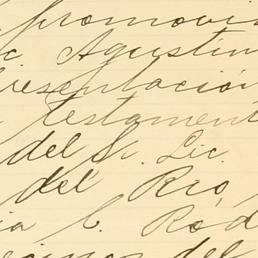 promovi
c. Agustin
presentación
testament
del Sr. Lic.
del Rio,
ia C. Ród
cinos del